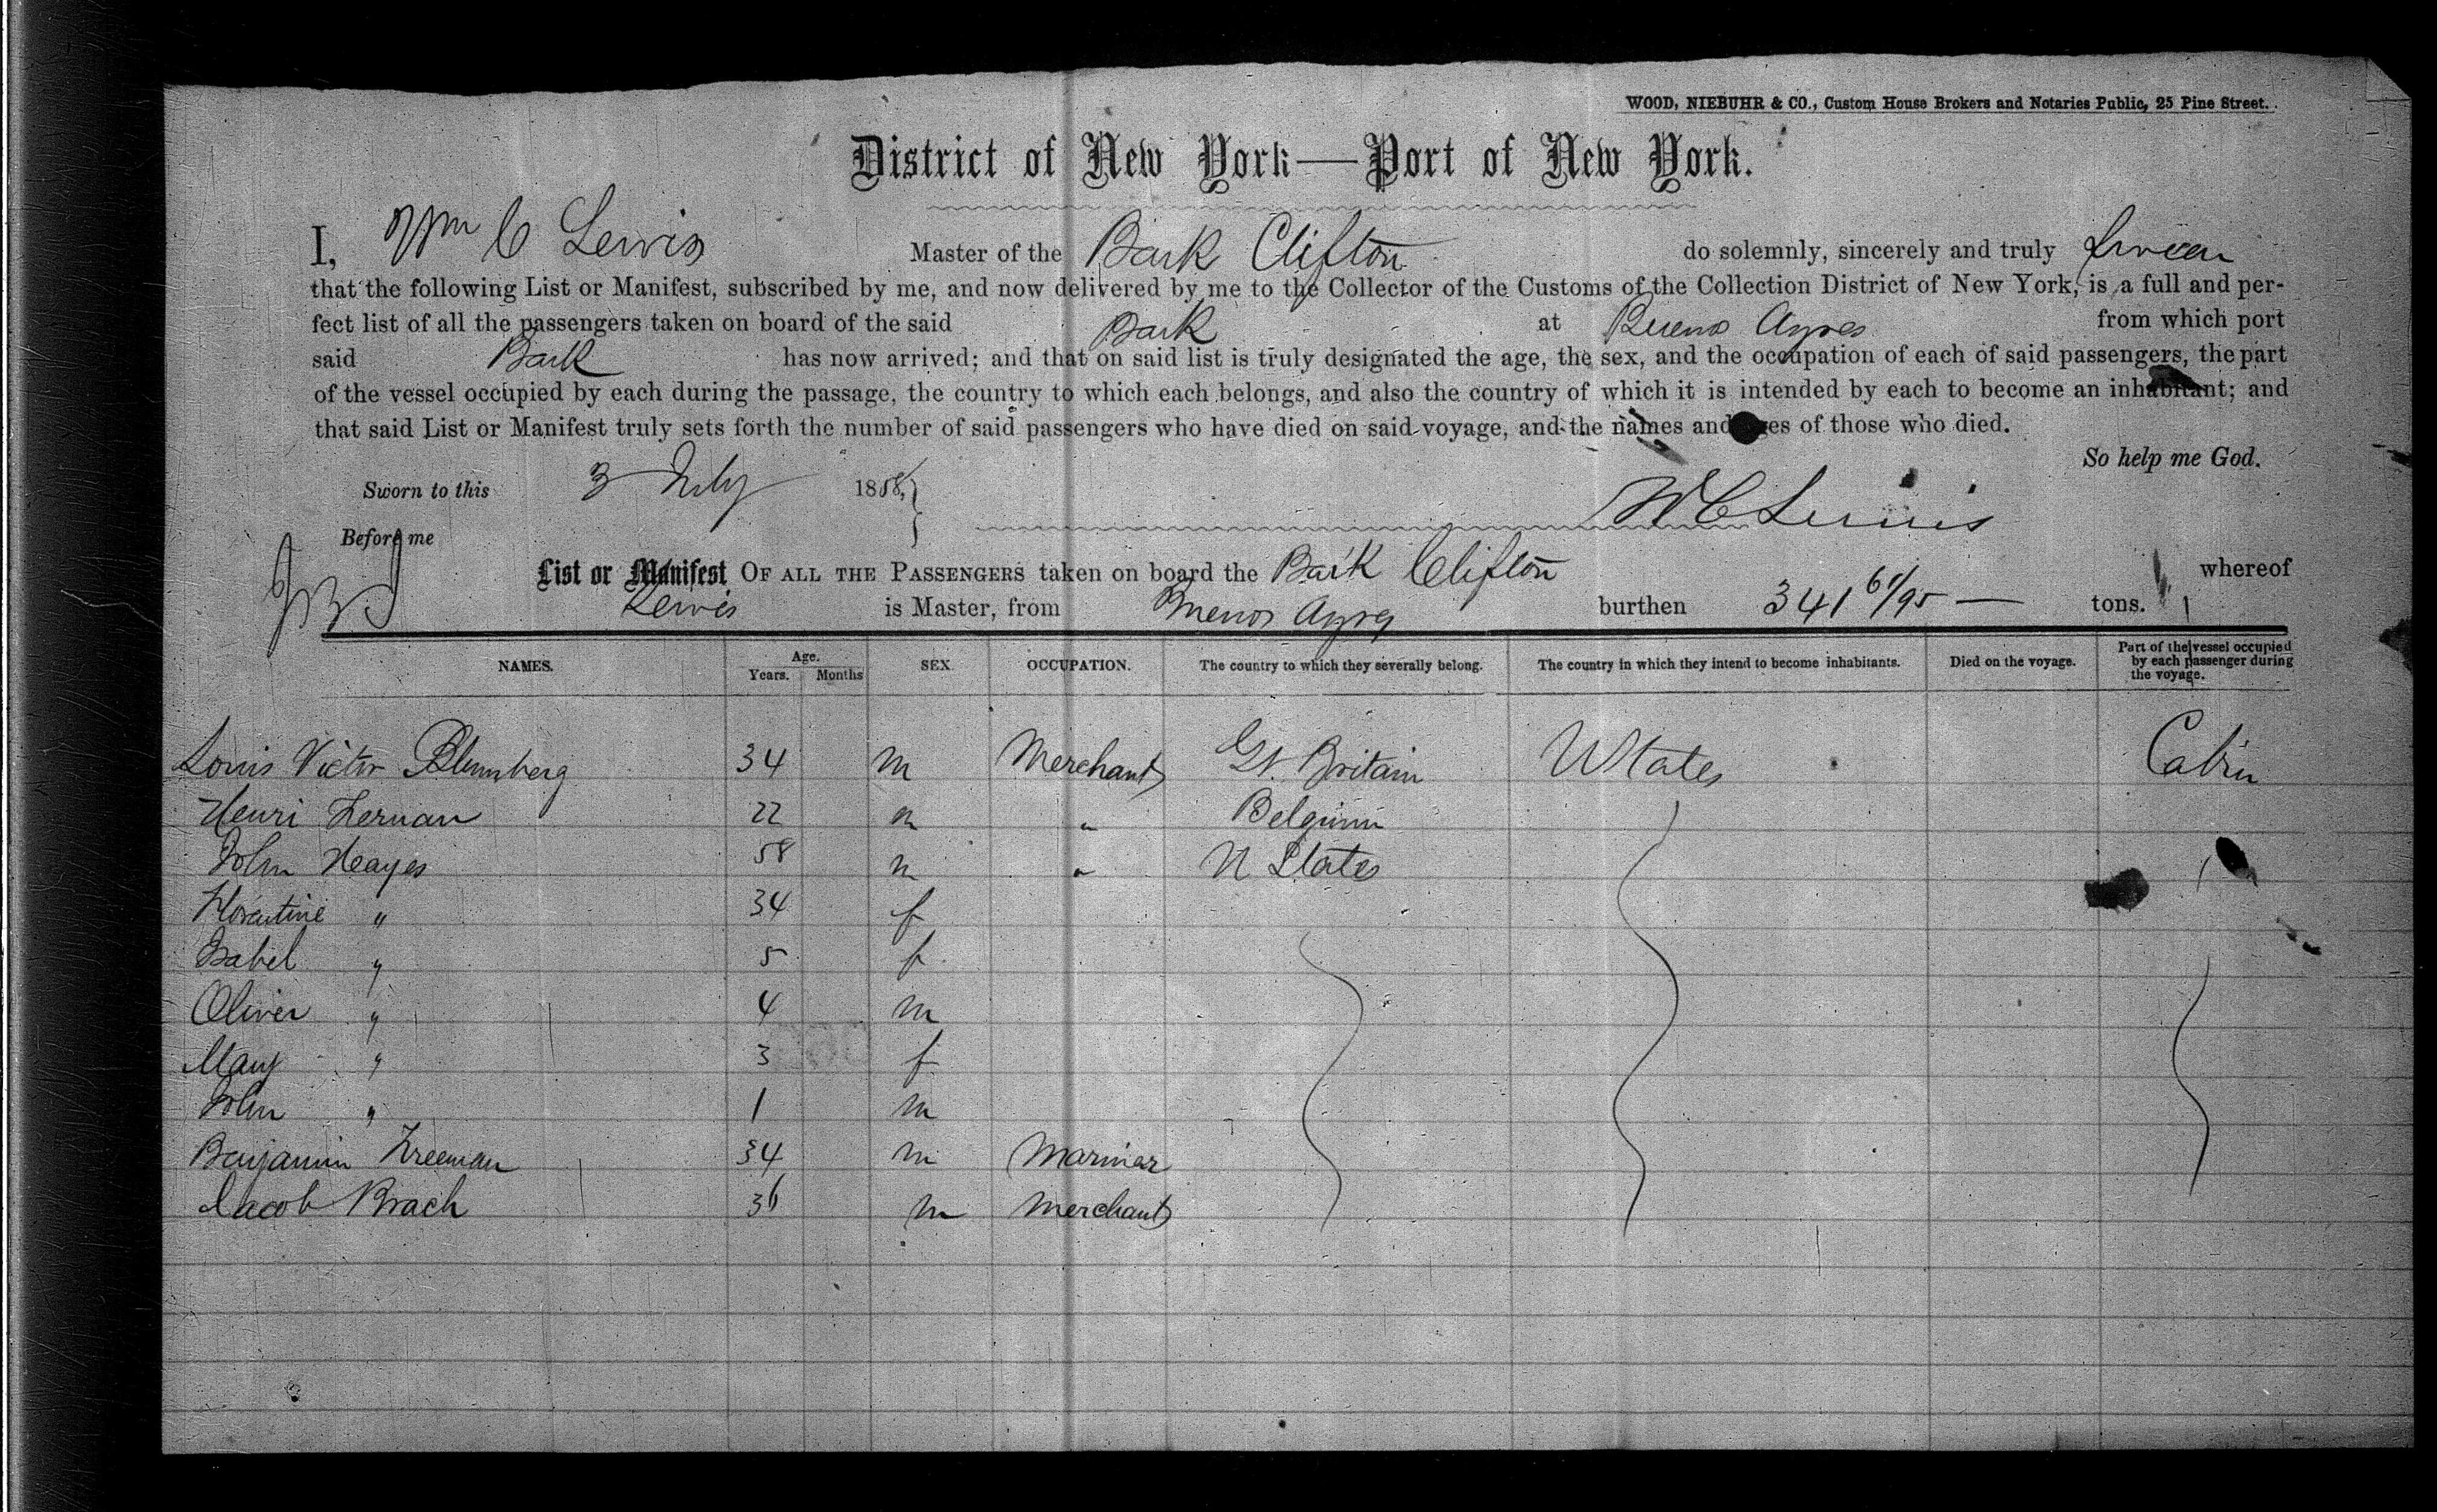 WOOD, NIEBUHR & CO., Custom House Brokers and Notaries Public, 25 Pine Street.
District of New York—Port of New York.
I, Wm C Lewis Master of the Bark Clifton do solemnly, sincerely and truly swear
that the following List or Manifest, subscribed by me, and now delivered by me to the Collector of the Customs of the Collection District of New York, is a full and per-
fect list of all the passengers taken on board of the said Bark at Buenos Ayres from which port
said Bark has now arrived; and that on said list is truly designated the age, the sex, and the occupation of each of said passengers, the part
of the vessel occupied by each during the passage, the country to which each belongs, and also the country of which it is intended by each to become an inhabitant; and
that said List or Manifest truly sets forth the number of said passengers who have died on said voyage, and the names and ages of those who died.
So help me God.
Sworn to this 3 July 1858,
W C Lewis
Before me
List or Manifest OF ALL THE PASSENGERS taken on board the Bark Clifton whereof
Lewis is Master, from Buenos Ayres burthen 341 61/95 — tons.
NAMES. Age. Years. Months SEX OCCUPATION. The country to which they severally belong. The country in which they intend to become inhabitants. Died on the voyage. Part of the vessel occupied by each passenger during the voyage.
Louis Victor Blumberg 34 m Merchant Gt. Britain U States Cabin
Henri 22 m " Belgium
John Heayes 58 m " U States
Florentine " 34 f
Isabel " 5 f
Oliver " 4 m
Mary " 3 f
John " 1 m
Benjamin Freeman 34 m Mariner
Jacob Brach 36 m Merchant